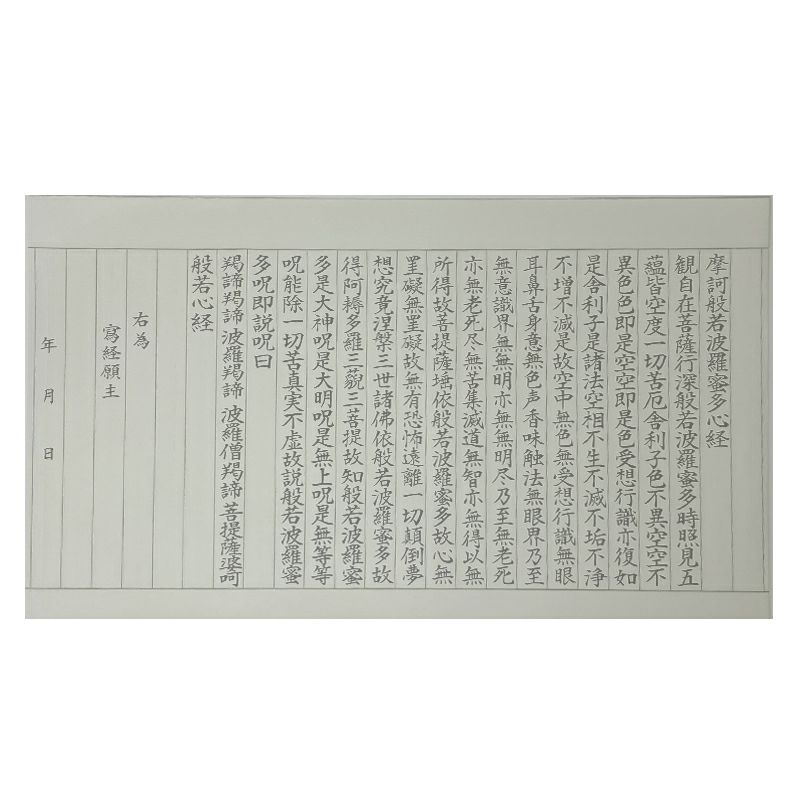 摩訶般若波羅蜜多心経
観自在菩薩行深般若波羅蜜多時照見五
蘊皆空度一切苦厄舎利子色不異空空不
異色色即是空空即是色受想行識亦復如
是舎利子是諸法空相不生不滅不垢不浄
不増不減是故空中無色無受想行識無眼
耳鼻舌身意無色声香味触法無眼界乃至
無意識界無無明亦無無明尽乃至無老死
亦無老死尽無苦集滅道無智亦無得以無
所得故菩提薩埵依般若波羅蜜多故心無
罣礙無罣礙故無有恐怖遠離一切顛倒夢
想究竟涅槃三世諸佛依般若波羅蜜多故
得阿耨多羅三藐三菩提故知般若波羅蜜
多是大神呪是大明呪是無上呪是無等等
呪能除一切苦真実不虚故説般若波羅蜜
多呪即説呪曰
羯諦羯諦 波羅羯諦 波羅僧羯諦 菩提薩婆訶
般若心経
右為
寫経願主
年 月 日